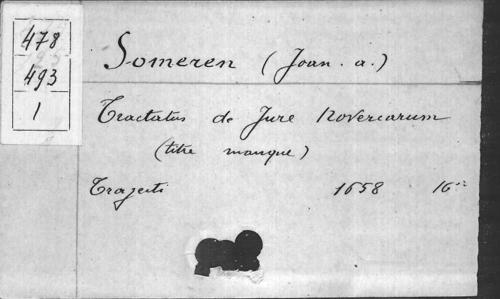 478
493
1
Someren (Joan. a.)
Tractatus de Jure Novercarum
(titre manque)
Trajecti 1658 16°